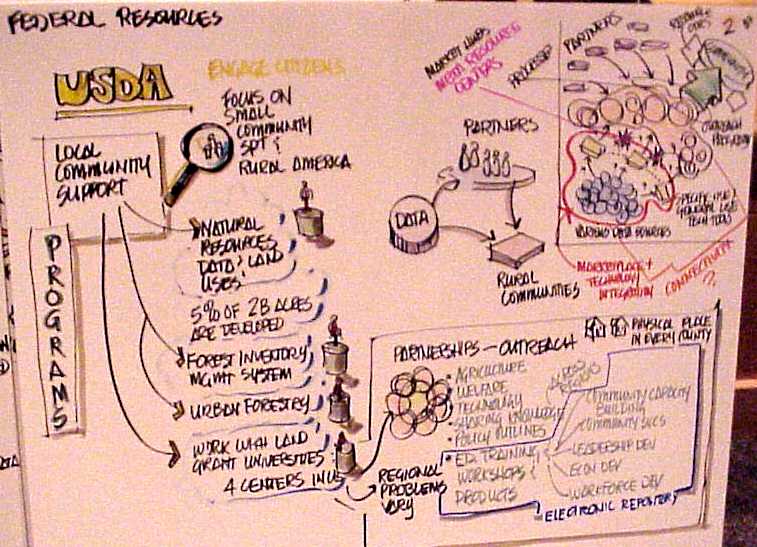 FEDERAL RESOURCES
USDA
ENGAGE CITIZENS
FOCUS ON
SMALL
COMMUNITY
SPT &
RURAL AMERICA
LOCAL
COMMUNITY
SUPPORT
PROGRAMS
NATURAL
RESOURCES
DATA & LAND
USES
5% OF 2B ACRES
ARE DEVELOPED
FOREST INVENTORY
MGMT SYSTEM
URBAN FORESTRY
WORK WITH LAND
GRANT UNIVERSITIES
4 CENTERS IN US
REGIONAL
PROBLEMS
VARY
PARTNERS
DATA
RURAL
COMMUNITIES
RESOURCE
CENTERS
PARTNERS
2
OUTREACH
GENERAL USE
TECH TOOLS
VARIOUS DATA SOURCES
MARKETPLACE +
TECHNOLOGY
INTEGRATION
CONNECTIVITY
?
PARTNERSHIPS - OUTREACH
PHYSICAL PLACE
IN EVERY COUNTY
• AGRICULTURE
WELFARE
TECHNOLOGY
• SHARING KNOWLEDGE
• POLICY OUTLINES
• ED. TRAINING
WORKSHOPS
PRODUCTS
COMMUNITY CAPACITY
BUILDING
COMMUNITY SVCS
LEADERSHIP DEV
ECON DEV
WORKFORCE DEV
ELECTRONIC REPOSITORY